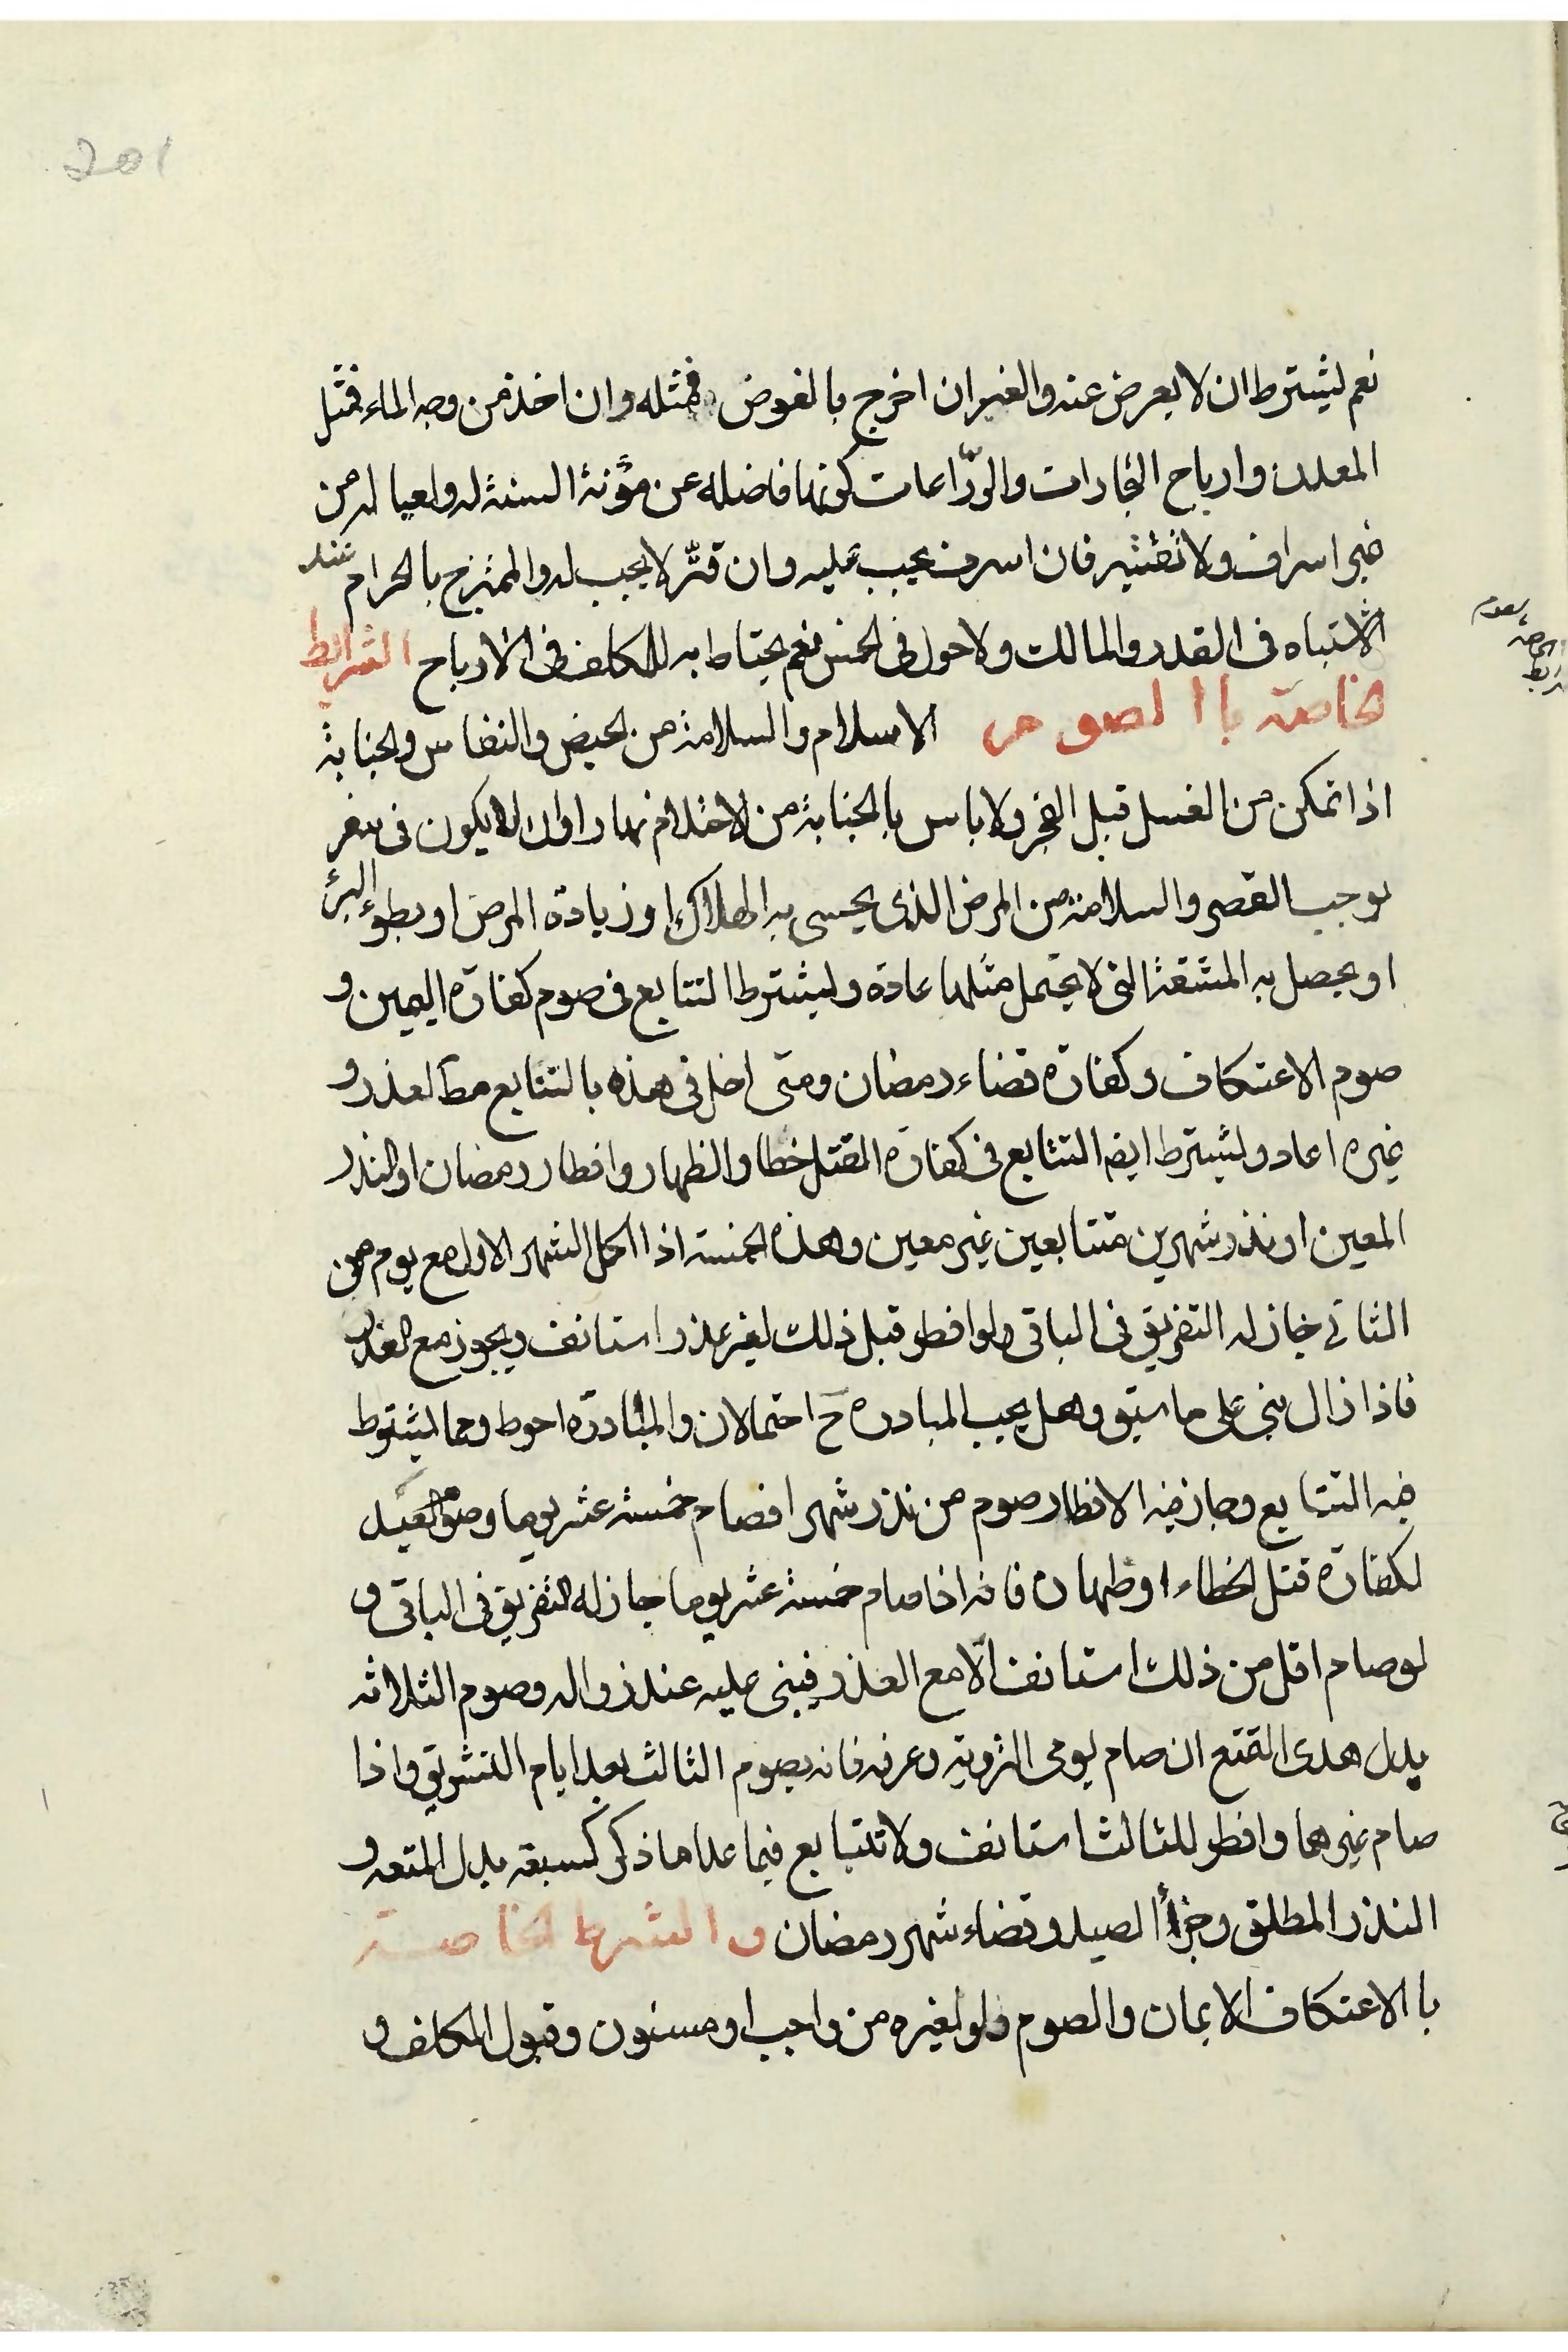 201
نعم ليشترط ان لا يعرض عنه والعنبر ان اخرج بالغوص فمثله وان اخذ من وجه الماء فمثل
المعدن وارباح التجارات والزراعات كونها فاضله عن مؤنة السنة له ولعياله من
غير اسراف ولا تقتير فان اسرف يجب عليه وان قتّر لا يجب له والممتزج بالحرام عند
الاشتباه فى القدر والمالك ولا حول فى الخمس نعم يحتاط به للمكلف فى الارباح الشرائط
الخاصة باالصوم الاسلام والسلامة من الحيض والنفاس والجنابة
اذا تمكن من الغسل قبل الفجر ولا باس بالجنابة من الاحتلام نهارا وان لا يكون فى سفر
يوجب القصر والسلامة من المرض الذى يخشى به الهلاك او زيادة المرض او بطوء البرء
او يحصل به المشقة التى لا يحتمل مثلها عادة وليشترط التتابع فى صوم كفارة اليمين و
صوم الاعتكاف وكفارة قضاء رمضان ومتى اخل فى هذه بالتتابع مط لعذر و
غيره اعاد وليشترط ايضا التتابع فى كفارة القتل خطا والظهار وافطار رمضان او النذر
المعين او نذر شهرين متتابعين غير معين وهذه الخمسة اذا اكمل الشهر الاول مع يوم من
الثانى جاز له التفريق فى الباقى ولو افطر قبل ذلك لغير عذر استانف ويجوز مع العذر
فاذا زال بنى على ما سبق وهل يجب المبادره ح احتمالان والمبادرة احوط ومما ليشترط
فيه التتابع وجاز فيه الافطار صوم من نذر شهرا فصام خمسة عشر يوما وصوم العبد
لكفارة قتل الخطاء او ظهار فانه اذا صام خمسة عشر يوما جاز له التفريق فى الباقى و
لو صام اقل من ذلك استانف الّا مع العذر فيبنى عليه عند زواله وصوم الثلاثه
بدل هدى التمتع ان صام يومى التروية وعرفه فانه يصوم الثالث بعد ايام التشريق واذا
صام غيرهما وافطر للثالث استانف ولا تتابع فيما عدا ما ذكر كسبعة بدل المتعه و
النذر المطلق وجزأ الصيد وقضاء شهر رمضان و الشرط الخاصة
باالاعتكاف الايمان والصوم ولو لغيره من واجب او مسنون وقبول المكلف و